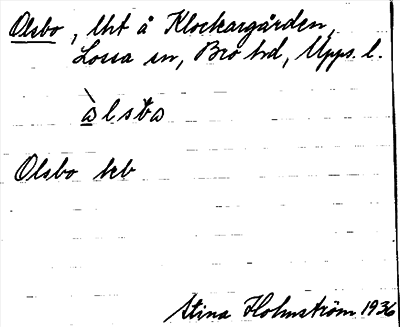 Olsbo, lht å Klockargården,
Lossa sn, Bro hd, Upps. l.
àlsba
Olsbo hcb
Stina Holmström 1936